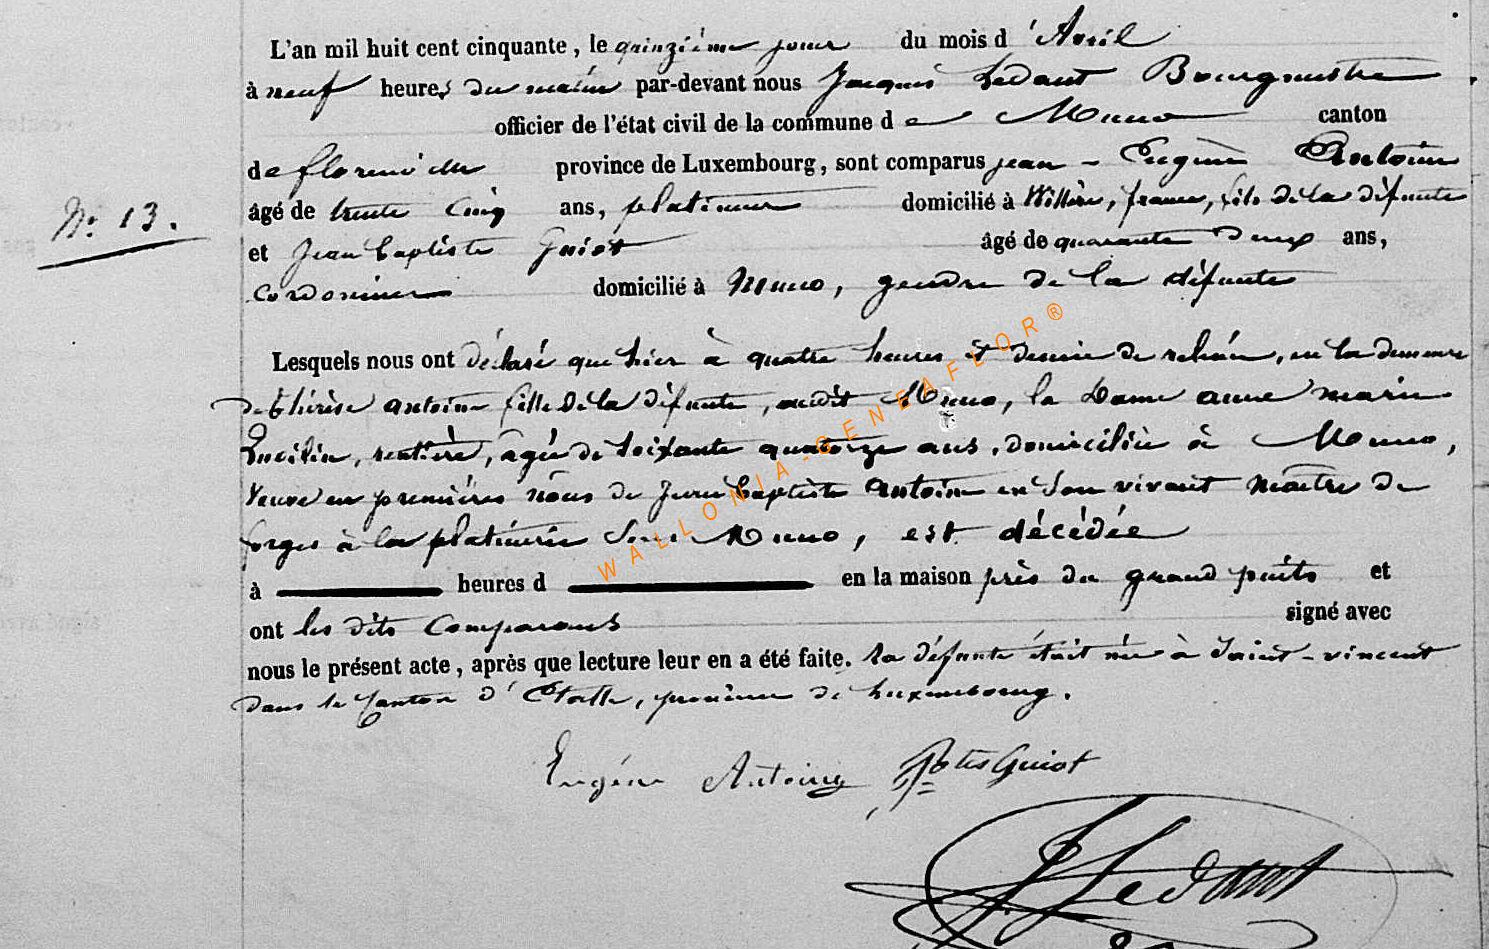 L'an mil huit cent cinquante, le quinzième jour du mois d'Avril
à neuf heures du matin par-devant nous Jacques Ledant Bourgmestre
officier de l'état civil de la commune de Muno canton
de florenville province de Luxembourg, sont comparus jean-Eugène Antoine
N.° 13.
âgé de trente Cinq ans, platineur domicilié à Williers, france, fils de la défunte
et Jean baptiste Guiot âgé de quarante deux ans,
cordonnier domicilié à Muno, gendre de la défunte
Lesquels nous ont déclaré que hier à quatre heures et demie de relevée, en la demeure
de thérèse antoine fille de la défunte, audit Muno, la Dame anne marie
rentière, âgée de soixante quatorze ans, domiciliée à Muno,
Veuve en premières nôces de Jean baptiste antoine en son vivant maître de
forges à la platinerie sous Muno, est décédée
à heures d en la maison près du grand puits et
ont les dits Comparans signé avec
nous le présent acte, après que lecture leur en a été faite. la défunte était née à Saint-vincent
dans le Canton d'Etalle, province de Luxembourg.
Eugène Antoine Jn Btes Guiot
J Ledant
WALLONIA-GENEAFLOR®